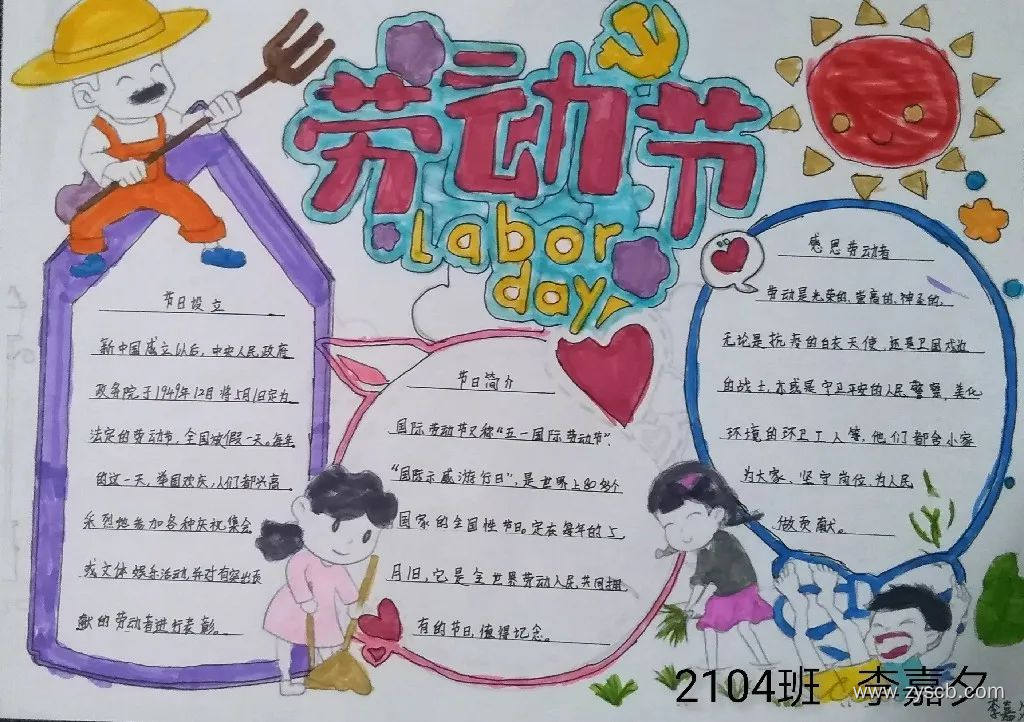 劳动节
Labor
day
节日设立
新中国成立以后，中央人民政府
政务院于1949年12月将5月1日定为
法定的劳动节，全国放假一天。每年
的这一天，举国欢庆，人们都兴高
采烈地参加各种庆祝集会
或文体娱乐活动，并对有突出贡
献的劳动者进行表彰。
节日简介
国际劳动节又称“五一国际劳动节”、
“国际示威游行日”，是世界上80多个
国家的全国性节日。定在每年的5
月1日，它是全世界劳动人民共同拥
有的节日，值得纪念。
感恩劳动者
劳动是光荣的、崇高的、神圣的。
无论是抗疫的白衣天使，还是卫国戍边
的战士，亦或是守卫平安的人民警察，美化
环境的环卫工人等，他们都舍小家
为大家、坚守岗位、为人民
做贡献。
2104班 李嘉夕
www.zyscb.com
李嘉